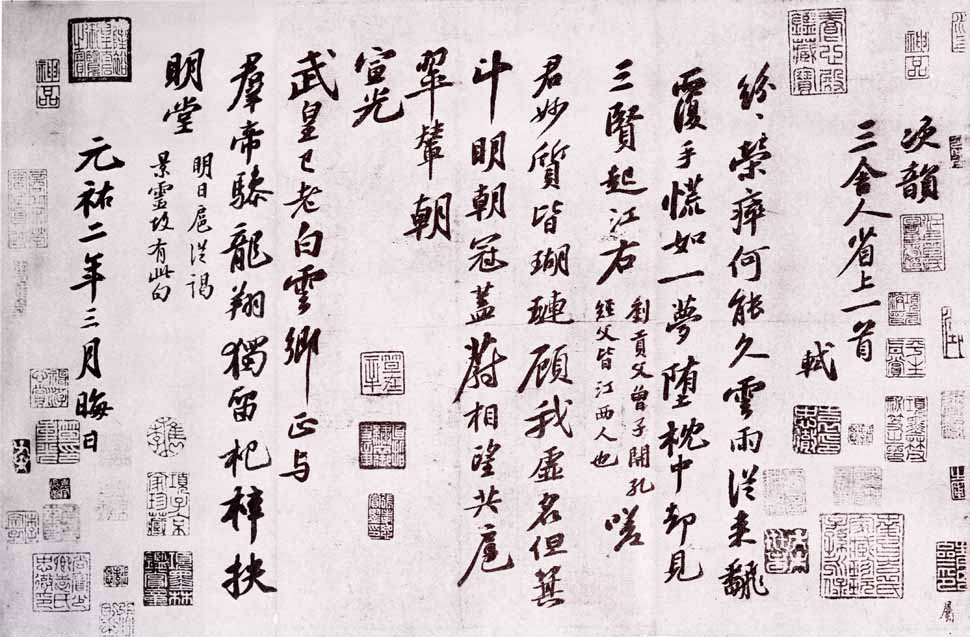 養心殿鑑藏寶
神品
次韻
三舍人省上一首
軾
紛〻榮瘁何能久雲雨從來翻
覆手慌如一夢墮枕中却見
三賢起江右
劉貢父曾子開孔
經父皆江西人也
嗟
君妙質皆瑚璉顧我虛名但箕
斗明朝冠蓋蔚相望共扈
翠輦朝
宣光
武皇已老白雲鄉正与
羣帝驂龍翔獨留杞梓扶
明堂
明日扈從謁
景靈故有此句
元祐二年三月晦日
神品
項子京
家珍藏